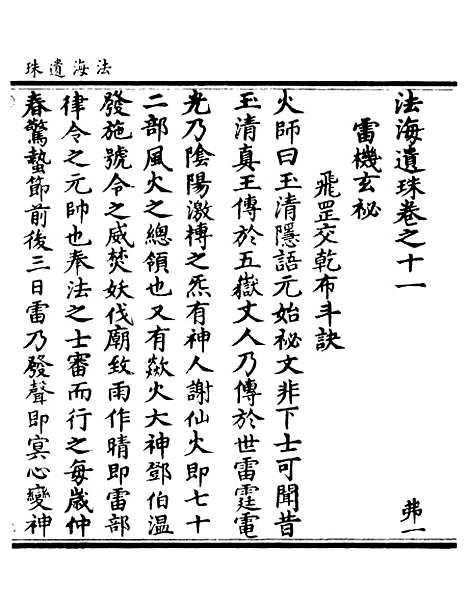 法海遺珠
法海遺珠卷之十一　弗一
雷機玄祕
飛罡交乾布斗訣
火師曰玉清隱語元始祕文非下士可聞昔
玉清真王傳於五嶽丈人乃傳於世雷霆電
光乃陰陽激搏之炁有神人謝仙火即七十
二部風火之總領也又有歘火大神鄧伯溫
發施號令之威焚妖伐廟致雨作晴即雷部
律令之元帥也奉法之士審而行之每歲仲
春驚蟄節前後三日雷乃發聲即冥心變神